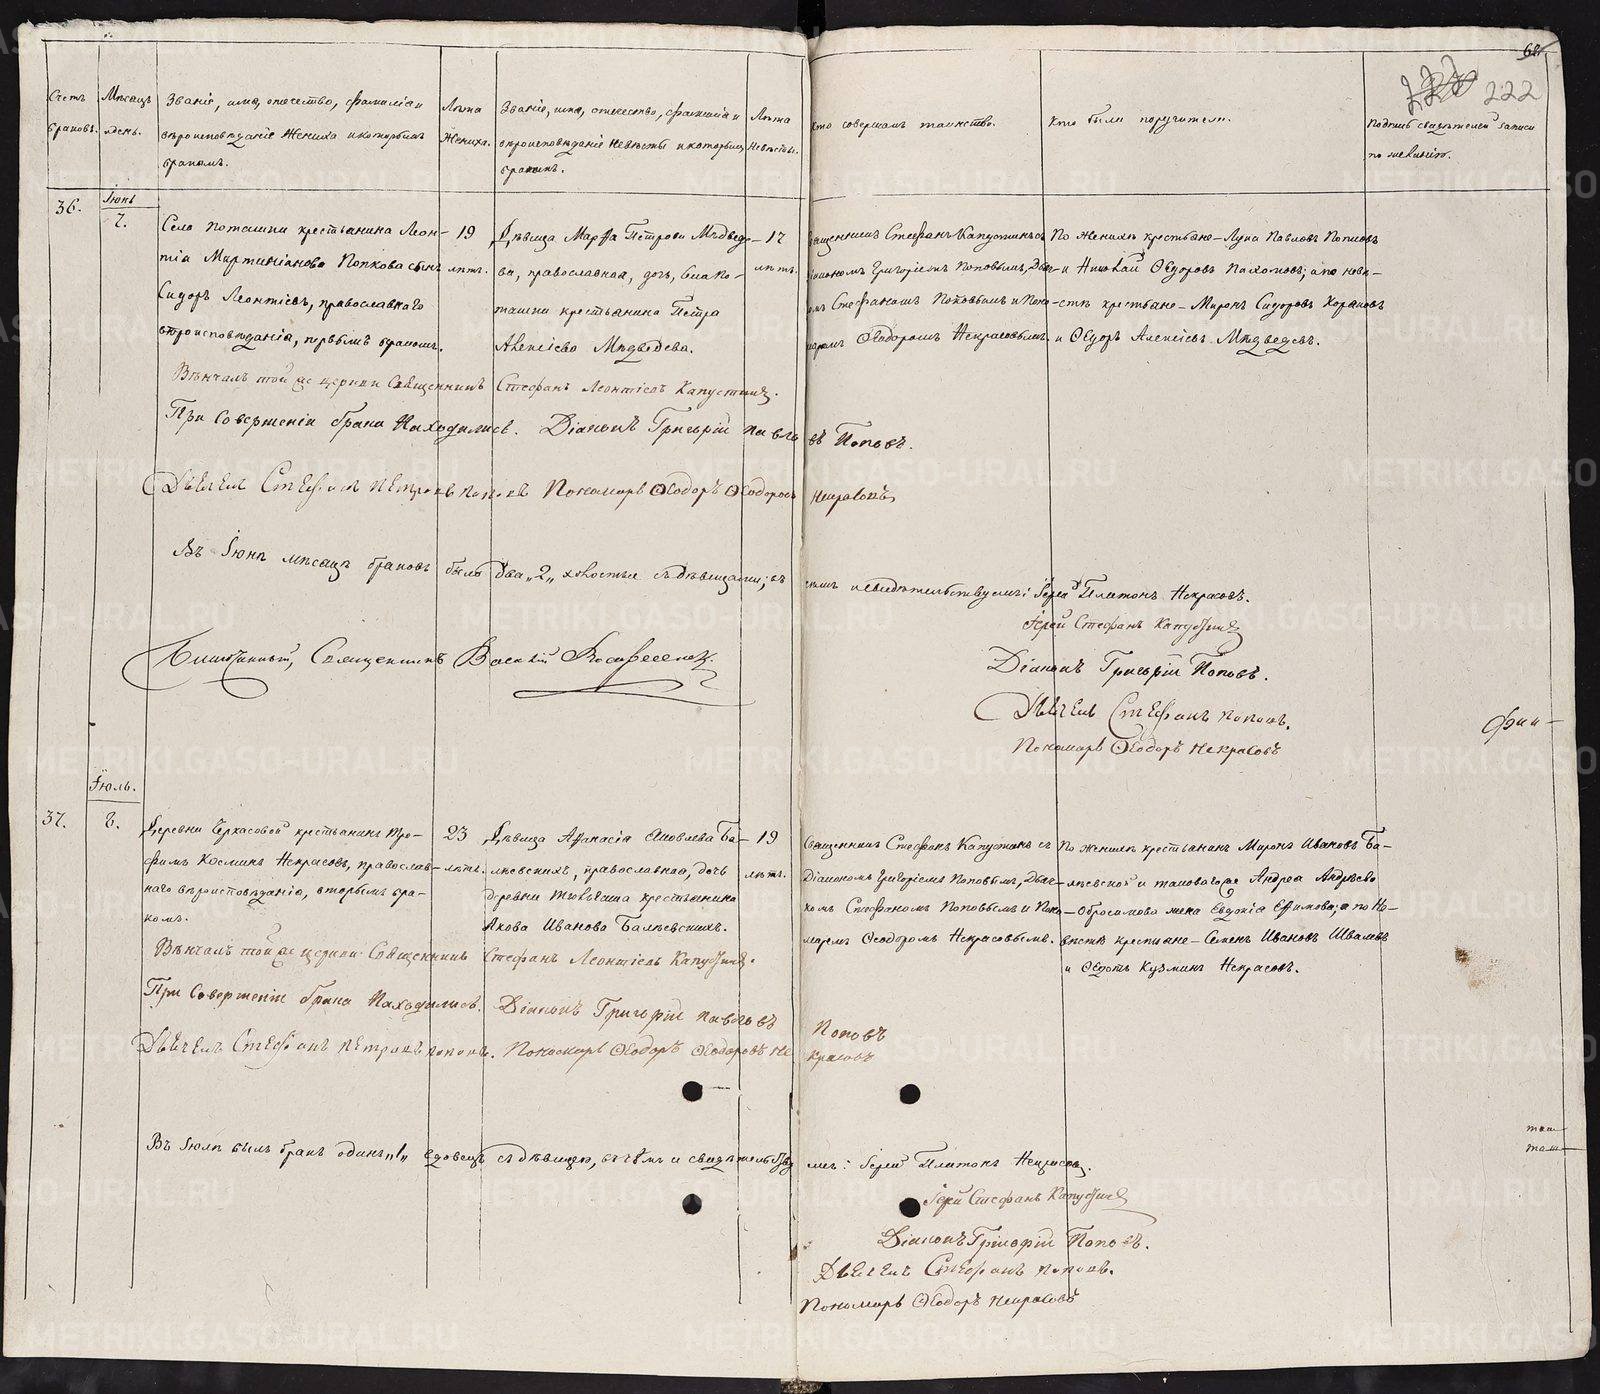 222
Счетъ браковъ.
Мѣсяцъ и день.
Званіе, имя, отчество, фамилія и
вѣроисповѣданіе жениха и которымъ
бракомъ.
Лѣта
жениха.
Званіе, имя, отчество, фамилія и
вѣроисповѣданіе невѣсты и которымъ
бракомъ.
Лѣта
невѣсты.
Кто совершалъ таинство.
Кто были поручители.
Подпись свидѣтелей записи
по желанію.
36.
Іюнь
7.
Села Поташки крестьянина Леон-
тія Мартиніанова Попкова сынъ
Сидоръ Леонтіевъ, православнаго
вѣроисповѣданія, первымъ бракомъ.
19
лѣтъ.
Дѣвица Марѳа Петрова Мѣдвед-
ва, православная, дочь села По-
ташки крестьянина Петра
Алексѣева Мѣдведева.
17
лѣтъ.
Священникъ Стефанъ Капустинъ съ
Діакономъ Григоріемъ Поповымъ, Дьяч-
комъ Стефаномъ Поповымъ и Поно-
маремъ Ѳеодоромъ Некрасовымъ.
По женихѣ крестьяне – Лука Павловъ Попковъ
и Николай Ѳедоровъ Пахомовъ; а по невѣ-
стѣ крестьяне – Миронъ Сидоровъ
и Ѳедоръ Алексіевъ Мѣдведевъ.
Вѣнчалъ той же церкви Священникъ Стефанъ Леонтіевъ Капустинъ.
При совершеніи брака находились. Діаконъ Григорій Павловъ Поповъ.
Дьячекъ Стефанъ Петровъ Поповъ Пономарь Ѳеодоръ Ѳеодоровъ Некрасовъ
Въ Іюнѣ мѣсяцѣ браковъ было два „2„ холостые съ дѣвицами; въ чемъ и свидѣтельствуемъ: Іерей Платонъ Некрасовъ.
Іерей Стефанъ Капустинъ
Благочинный, Священникъ Василій
Діаконъ Григорій Поповъ.
Дьячекъ Стефанъ Поповъ.
Пономарь Ѳеодоръ Некрасовъ
37.
Іюль.
8.
Деревни Черкасовой крестьянинъ Тро-
фимъ Косминъ Некрасовъ, православ-
наго вѣроисповѣданія, вторымъ бра-
комъ.
23
лѣтъ.
Дѣвица Аѳанасія Яковлева Ба-
лѣевскихъ, православная, дочь
деревни крестьянина
Якова Иванова Балѣевскихъ.
19
лѣтъ.
Священникъ Стефанъ Капустинъ съ
Діакономъ Григоріемъ Поповымъ, Дьяч-
комъ Стефаномъ Поповымъ и Поно-
маремъ Ѳеодоромъ Некрасовымъ.
По женихѣ крестьянинъ Миронъ Ивановъ Ба-
лѣевской и таковогоже Андрея Андрѣева
Обросимова жена Евдокія Ефимова; а по не-
вѣстѣ крестьяне – Семенъ Ивановъ Шваловъ
и Ѳедотъ Кузминъ Некрасовъ.
Вѣнчалъ той же церкви Священникъ Стефанъ Леонтіевъ Капустинъ.
При совершеніи брака находились. Діаконъ Григорій Павловъ Поповъ
Дьячекъ Стефанъ Петровъ Поповъ. Пономарь Ѳеодоръ Ѳеодоровъ Некрасовъ
Въ Іюлѣ былъ бракъ одинъ „1„ вдовецъ съ дѣвицею, въ чемъ и свидѣтельствуемъ: Іерей Платонъ Некрасовъ.
Іерей Стефанъ Капустинъ
Діаконъ Григорій Поповъ.
Дьячекъ Стефанъ Поповъ.
Пономарь Ѳеодоръ Некрасовъ
METRIKI.GASO-URAL.RU